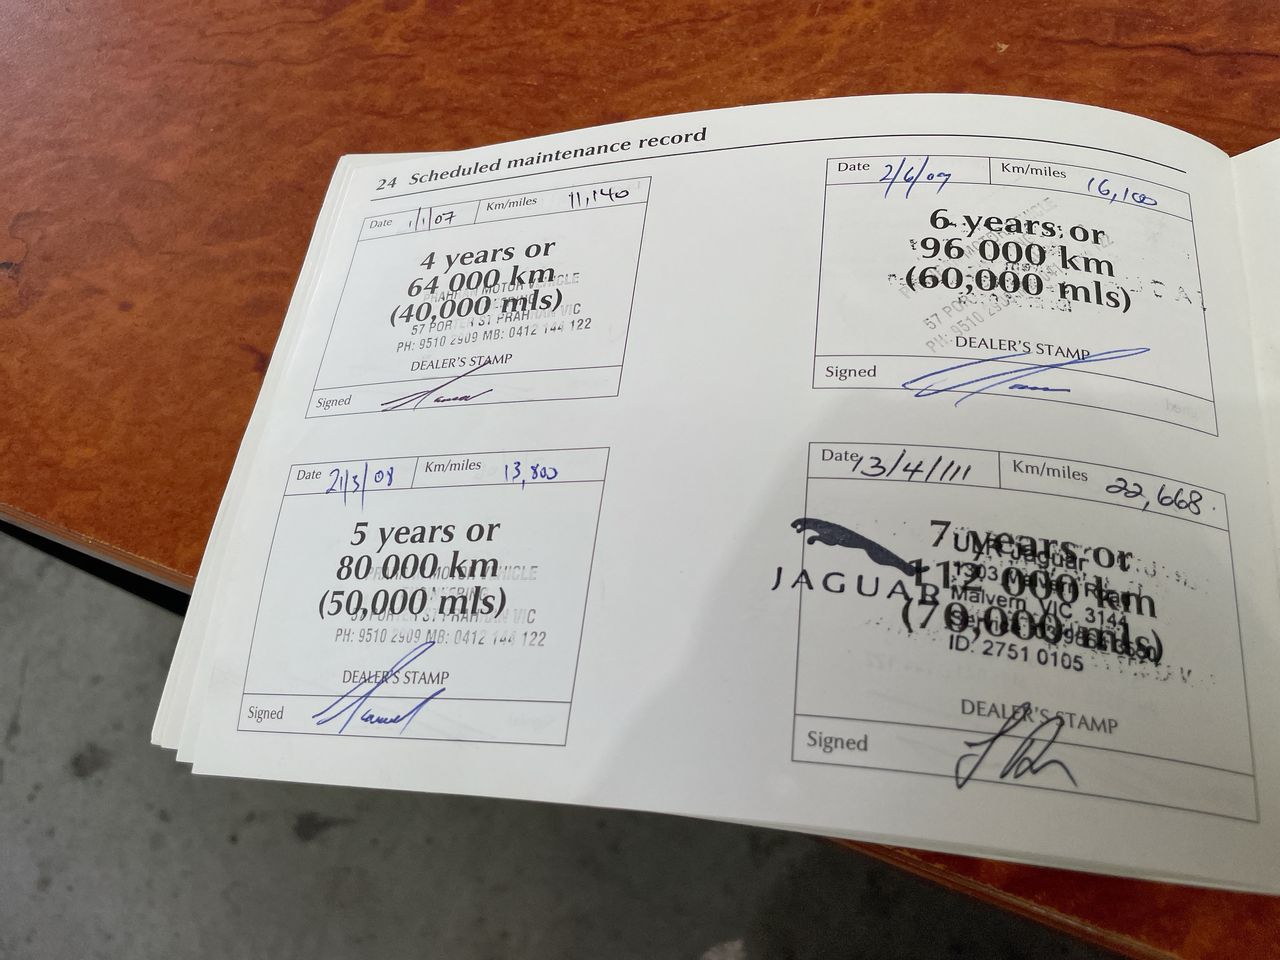 24 Scheduled maintenance record
Date 1/1/07 Km/miles 11,140
4 years or
64 000 km
(40,000 mls)
PRAHRAN MOTOR VEHICLE
57 PORTER ST PRAHRAN VIC
PH: 9510 2909 MB: 0412 144 122
DEALER'S STAMP
Signed
Date 21/3/08 Km/miles 13,800
5 years or
80 000 km
(50,000 mls)
PRAHRAN MOTOR VEHICLE
57 PORTER ST PRAHRAN VIC
PH: 9510 2909 MB: 0412 144 122
DEALER'S STAMP
Signed
Date 2/6/09 Km/miles 16,100
6 years or
96 000 km
(60,000 mls)
57 PORTER
PH: 9510 2909
DEALER'S STAMP
Signed
Date 13/4/11 Km/miles 22,668
7 years or
112 000 km
(70,000 mls)
JAGUAR
ULR Jaguar
1303 Malvern Road
Malvern VIC 3144
ID: 2751 0105
DEALER'S STAMP
Signed